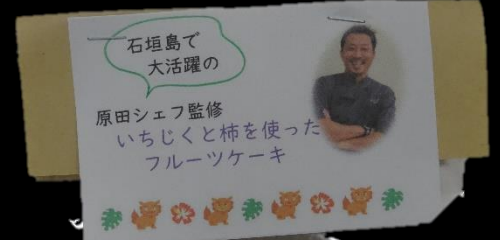 石垣島で
大活躍の
原田シェフ監修
いちじくと柿を使った
フルーツケーキ